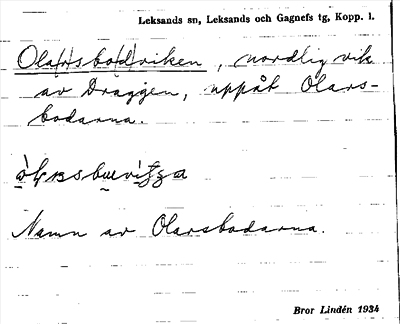 Leksands sn, Leksands och Gagnefs tg, Kopp. l.
Ola(r)sbo(d)viken, nordlig vik
av Draggen, uppåt Olars-
bodarna.
Namn av Olarsbodarna.
Bror Lindén 1934